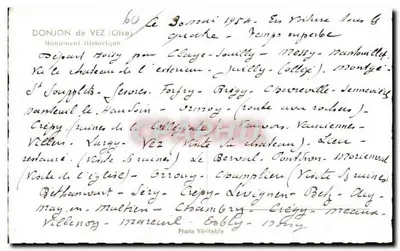 60
DONJON de VEZ (Oise)
Monument Historique
Le 30 mai 1954. En voiture tous les
quatre - Temps superbe
Départ Noisy par Claye-Souilly - Messy - Nantouillet
Vu le chateau de l'extérieur - Juilly (collège). Montgé
St Soupplets - Forfry - Brégy - Chevreville - Sennevières
Nanteuil le Haudouin - Ormoy (route aux rochers)
Crépy (ruines de la Collégiale) - Vauciennes -
Villers - Largy - Vez (Visite du chateau) - Lieu-
restauré (Visite des ruines) Le Berval - Pondron - Morienval
(Visite de l'église) - Orrouy - Champlieu (Visite des ruines)
Béthancourt - Séry - Crépy - Lévignen - Betz - Acy
May en Multien - Chambry - Crégy - Meaux
Villenoy - Mareuil - Esbly - Noisy
Photo Véritable